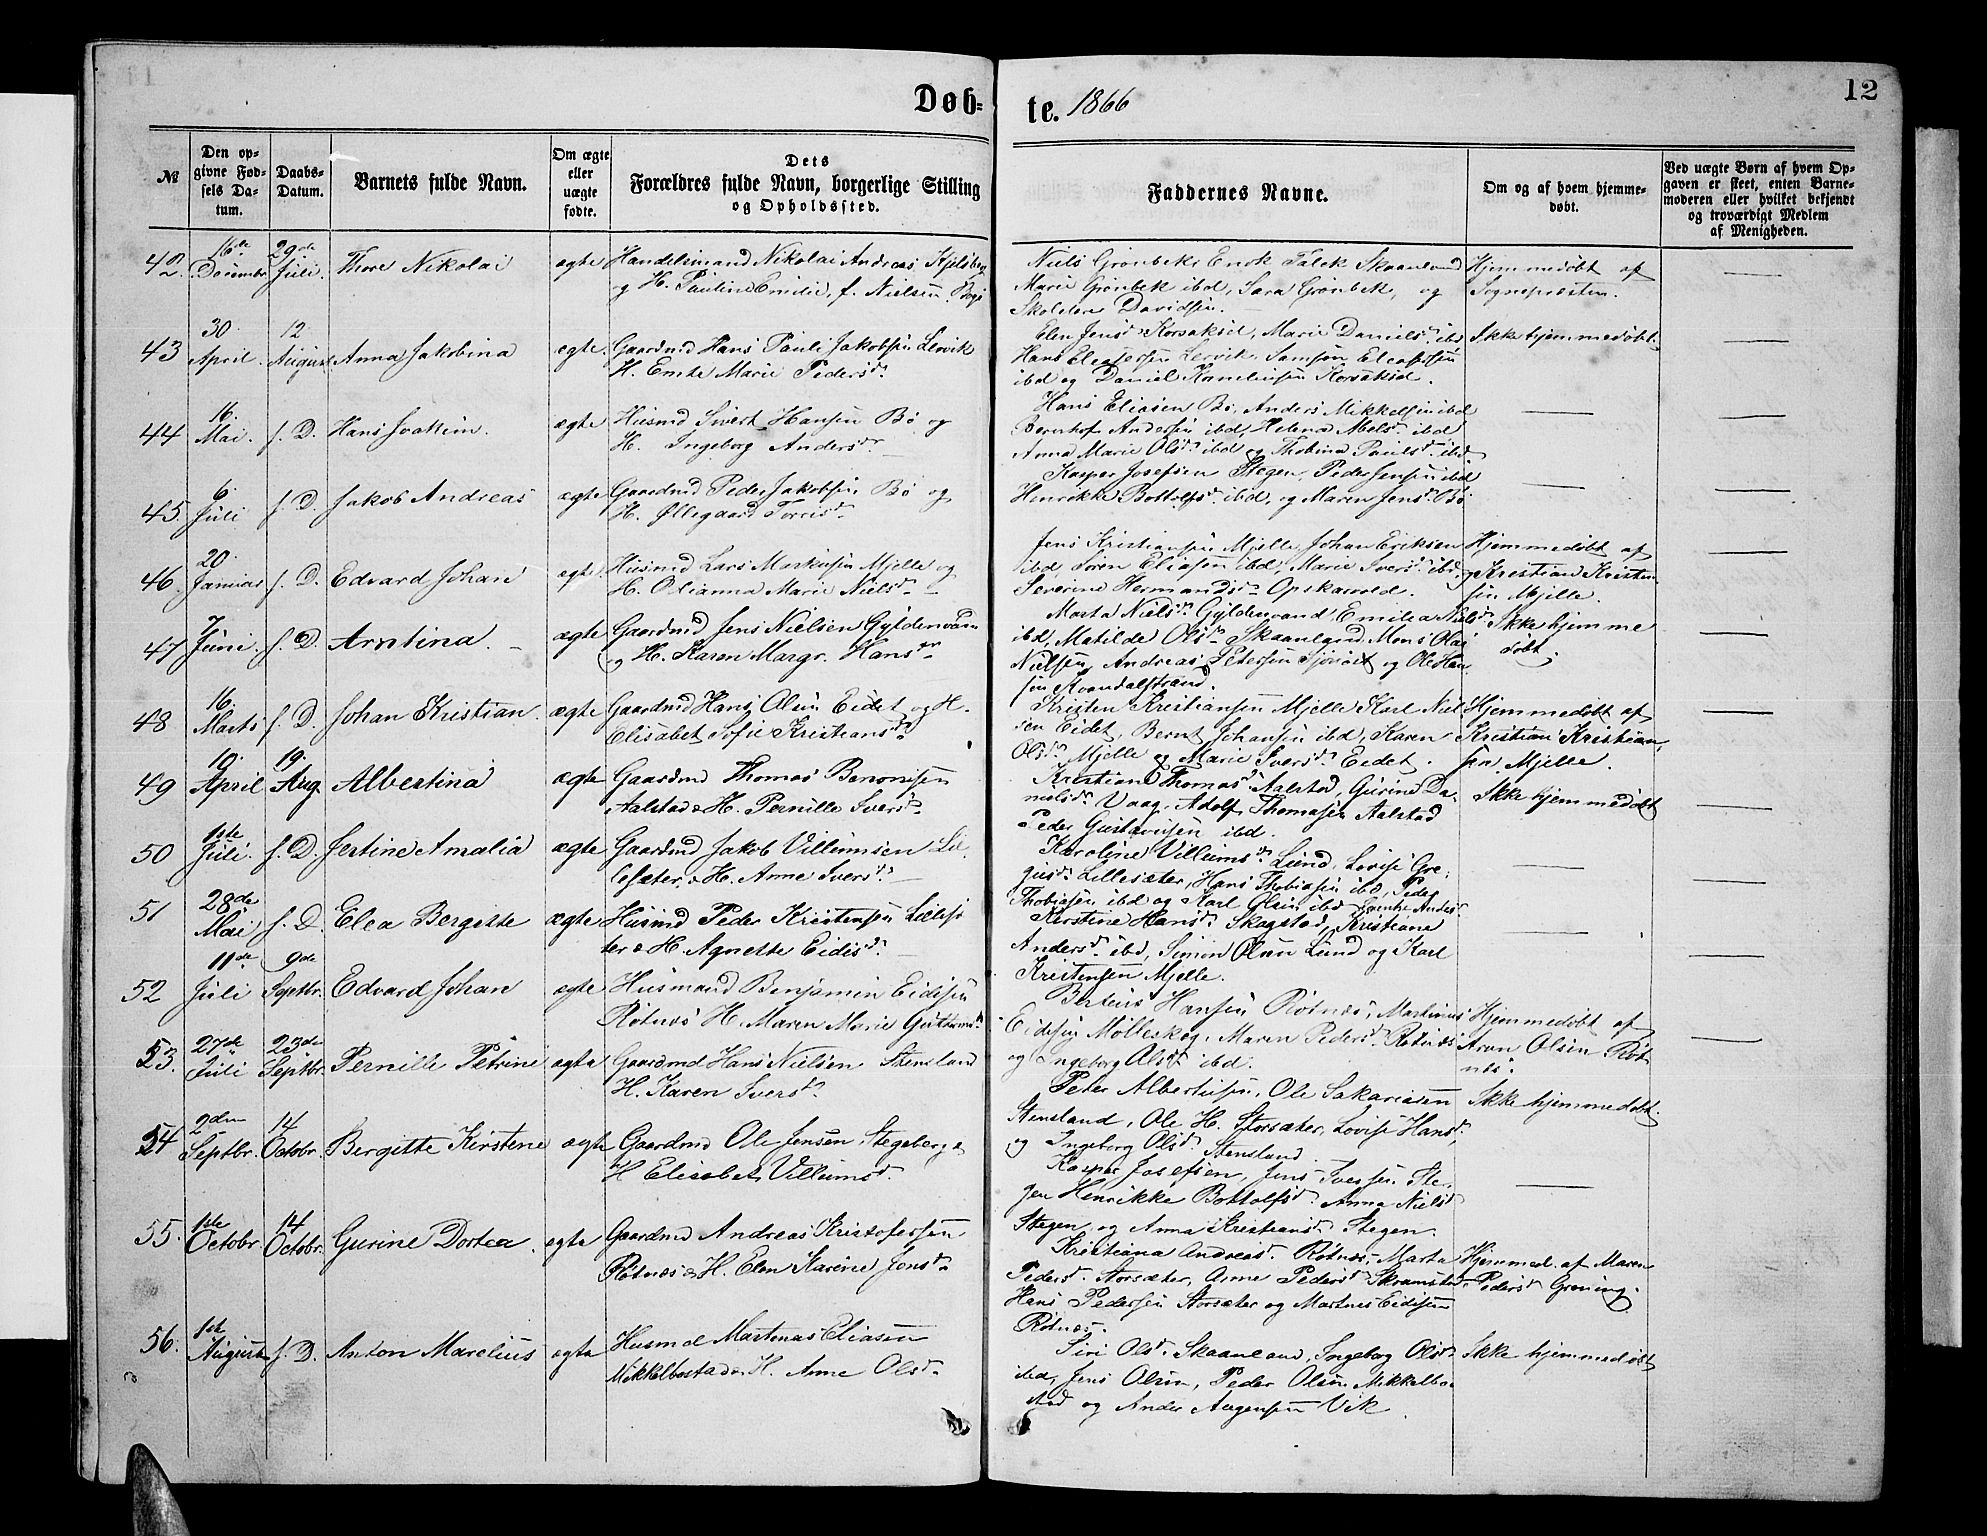 Døb-
te. 1866
12
№
Den op-
givne Fød-
sels Da-
tum.
Daabs-
Datum.
Barnets fulde Navn.
Om ægte
eller
uægte
fødte.
Dets
Forældres fulde Navn, borgerlige Stilling
og Opholdssted.
Faddernes Navne.
Om og af hvem hjemme-
døbt.
Ved uægte Børn af hvem Op-
gaven er skeet, enten Barne-
moderen eller hvilket bekjendt
og troværdigt Medlem
af Menigheden.
42.
16de
Decembr
29de
Juli.
Thore Nikolai
ægte
Handelsmand Nikolai Andreas Kjelsberg
og H. Pauline Emilie, f. Nielsen
Niels Grønbek, Enok Falck Skaanland
Marie Grønbek ibd, Sara Grønbek, og
Skolelærer Davidsen.
Hjemmedøbt af
Sognepræsten.
43
30
April.
12
August
Anna Jakobina
ægte.
Gaardmd Hans Pauli Jakobsen Lervik
H. Marie Pedersd.
Elen Jensd. Korsaksel, Marie Daniels. ibd
Hans Lervik, Samson
ibd og Daniel Korsaksel.
Ikke hjemmedøbt.
44
16.
Mai.
s. D.
Hans Joakim.
ægte
Husmd Sivert Hansen Bø og
H. Ingeborg Andersdr.
Hans Eliasen Bø, Anders Mikkelsen ibd
Andersen ibd, Helena Abelsd. ibd
Anna Marie Olsd. ibd og Thobina Paulsd. ibd
45.
6.
Juli
s. D.
Jakob Andreas
ægte
Gaardmd Peder Jakobsen Bø og
H. Øllegaard Torrisd.
Kasper Josefsen Stegen, Peder Jensen ibd
Henrikke Bottolfsd. ibd, og Maren Jensd. Bø
46.
20.
Januar
s. D.
Edvard Johan
ægte
Husmd Lars Markusen Mjelle og
H. Olianna Marie Nielsd.
Jens Kristiansen Mjelle, Johan Eriksen
ibd Søren Eliasen ibd, Marie Sversd. ibd, og
Severine Hermandsd. Opskarvold.
Hjemmedøbt af
Kristian Kristen-
sen Mjelle.
47
7
Juni.
s. D.
Arntina.
ægte
Gaardmd Jens Nielsen Gyldenvand
og H. Karen Margr. Hansdr.
Marta Nielsd. Gyldenvand, Emilie Nielsd.
ibd, Matilde Olsd. Skaanland, Mons
Nielsen, Andreas Petersen og Ole Han-
sen Kvandalstrand.
Ikke hjemme
døbt.
48
16.
Marts
s. D.
Johan Kristian.
ægte
Gaardmd Hans Olsen Eidet og H.
Elisabet Sofie Kristiansd.
Kristen Kristiansen Mjelle Karl Niel-
sen Eidet, Bernt Johansen ibd, Karen
Olsd. Mjelle og Marie Sversd. Eidet.
Hjemmedøbt af
Kristian Kristian-
sen Mjelle.
49
10
April
19.
Aug.
Albertina
ægte
Gaardmd Thomas Benonisen
Aalstad & H. Pernille Sversd.
Kristiane Thomasd. Aalstad, Gurine Da-
nielsd. Vaag, Adolf Thomasen Aalstad
Peder Gustavsen ibd.
Ikke hjemmedøbt
50
1ste
Juli.
s. D.
Jertine Amalia
ægte
Gaardmd Jakob Villumsen Lil-
lesæter, & H. Anne Sversd.
Karoline Villumsd. Lund, Lovise Gre-
gusd. Lillesæter, Hans Thobiasen ibd, Peder
Thobiasen ibd og Karl Olsen ibd
51
28de
Mai
s. D.
Elea Bergitte
ægte
Husmd Peder Kristensen Lillesæ-
ter & H. Agnette Eidisd.
Kirstine Hansd. Skagstad, Kristiane
Andersd. ibd, Simon Olsen Lund og Karl
Kristensen Mjelle.
52
11de
Juli
9de
Septbr.
Edvard Johan
ægte
Husmand Benjamin Eidisen
Røtnæs H. Maren Marie Guttormsd.
Berteus Hansen Røtnæs, Martinus
Eidisen Mølleskog, Maren Pedersd. Røtnæs
og Ingeborg Olsd. ibd.
Hjemmedøbt af
Aron Olsen Røt-
næs.
53.
27de
Juli
23de
Septbr.
Pernille Petrine
ægte
Gaardmd Hans Nielsen Stensland
H. Karen Sversd.
Peter Albertusen, Ole Sakariasen
Stensland, Ole H. Storsæter, Lovise Hansd.
og Ingeborg Olsd. Stensland.
Ikke hjemmedøbt.
54
2den
Septbr.
14
Octobr.
Bergitte Kirstene
ægte
Gaardmd Ole Jensen Stegeberg &
H Elisabet Villumsd.
Kasper Josefsen, Jens Iversen Ste-
gen Henrikke Bottolfsd. Anna Nielsd
Stegen, og Anna Kristiansd. Stegen.
55.
1ste
Octobr
14
Octobr.
Gurine Dortea.
ægte
Gaardmd Andreas Kristofersen
Røtnæs & H. Elen Karine Jensd.
Kristiana Andreasd. Røtnæs, Marta
Pedersd. Storsæter, Anne Pedersd. Skramstad,
Hans Pedersen Storsæter og Martnes Eidisen
Røtnæs.
Hjemmed. af Maren
Pedersd. Grøning.
56.
1ste
August
s. D.
Anton Marelius
ægte
Husmd Martenas Eliasen
Mikkelbostad & H. Anne Olsd.
Siri Olsd. Skaanland, Ingeborg Olsd.
ibd, Jens Olsen, Peder Olsen Mikkelbo-
stad og Anders Aagensen Vik.
Ikke hjemmedøbt